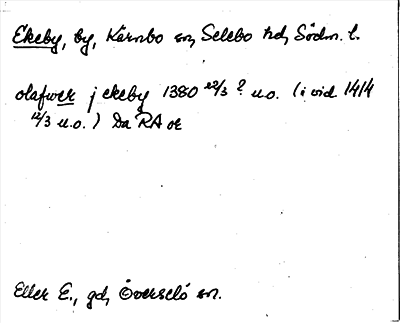 Ekeby, by, Kärnbo sn, Selebo hd, Södm. l.
olafwer j ekeby 1380 22/3 ? u.o. (i vid 1414
12/3 u.o.) Da RA or
Eller E., gd, Överselö sn.